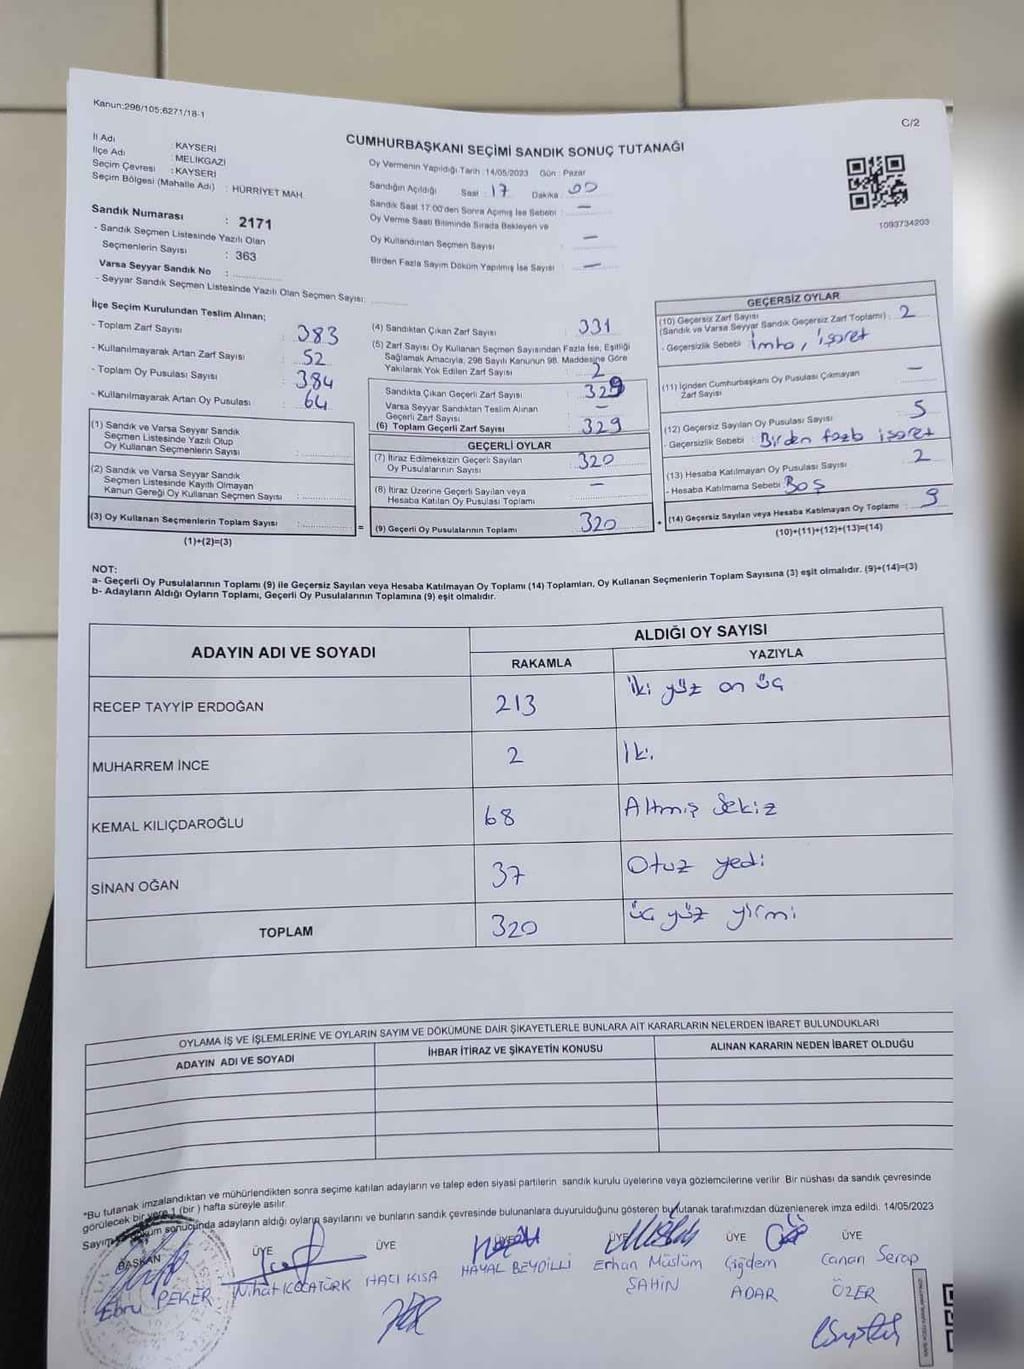 Kanun:298/105;6271/18-1
C/2
CUMHURBAŞKANI SEÇİMİ SANDIK SONUÇ TUTANAĞI
İl Adı : KAYSERİ
İlçe Adı : MELİKGAZİ
Seçim Çevresi : KAYSERİ
Seçim Bölgesi (Mahalle Adı) : HÜRRİYET MAH.
Sandık Numarası : 2171
- Sandık Seçmen Listesinde Yazılı Olan
Seçmenlerin Sayısı : 363
Varsa Seyyar Sandık No :
- Seyyar Sandık Seçmen Listesinde Yazılı Olan Seçmen Sayısı:
Oy Vermenin Yapıldığı Tarih :14/05/2023 Gün : Pazar
Sandığın Açıldığı Saat : 17 Dakika : 00
Sandık Saat 17:00'den Sonra Açılmış İse Sebebi : —
Oy Verme Saati Bitiminde Sırada Bekleyen ve
Oy Kullandırılan Seçmen Sayısı : —
Birden Fazla Sayım Döküm Yapılmış İse Sayısı : —
1093734203
İlçe Seçim Kurulundan Teslim Alınan;
- Toplam Zarf Sayısı : 383
- Kullanılmayarak Artan Zarf Sayısı : 52
- Toplam Oy Pusulası Sayısı : 384
- Kullanılmayarak Artan Oy Pusulası : 64
(1) Sandık ve Varsa Seyyar Sandık
Seçmen Listesinde Yazılı Olup
Oy Kullanan Seçmenlerin Sayısı :
(2) Sandık ve Varsa Seyyar Sandık
Seçmen Listesinde Kayıtlı Olmayan
Kanun Gereği Oy Kullanan Seçmen Sayısı :
(3) Oy Kullanan Seçmenlerin Toplam Sayısı :
(1)+(2)=(3)
=
(4) Sandıktan Çıkan Zarf Sayısı : 331
(5) Zarf Sayısı Oy Kullanan Seçmen Sayısından Fazla İse, Eşitliği
Sağlamak Amacıyla, 298 Sayılı Kanunun 98. Maddesine Göre
Yakılarak Yok Edilen Zarf Sayısı : 2
Sandıkta Çıkan Geçerli Zarf Sayısı : 329
Varsa Seyyar Sandıktan Teslim Alınan
Geçerli Zarf Sayısı : —
(6) Toplam Geçerli Zarf Sayısı : 329
GEÇERLİ OYLAR
(7) İtiraz Edilmeksizin Geçerli Sayılan
Oy Pusulalarının Sayısı : 320
(8) İtiraz Üzerine Geçerli Sayılan veya
Hesaba Katılan Oy Pusulası Toplamı : —
(9) Geçerli Oy Pusulalarının Toplamı : 320
+
GEÇERSİZ OYLAR
(10) Geçersiz Zarf Sayısı
(Sandık ve Varsa Seyyar Sandık Geçersiz Zarf Toplamı) : 2
- Geçersizlik Sebebi : İmha, işaret
(11) İçinden Cumhurbaşkanı Oy Pusulası Çıkmayan
Zarf Sayısı : —
(12) Geçersiz Sayılan Oy Pusulası Sayısı : 5
- Geçersizlik Sebebi : Birden fazla işaret
(13) Hesaba Katılmayan Oy Pusulası Sayısı : 2
- Hesaba Katılmama Sebebi : Boş
(14) Geçersiz Sayılan veya Hesaba Katılmayan Oy Toplamı : 9
(10)+(11)+(12)+(13)=(14)
NOT:
a- Geçerli Oy Pusulalarının Toplamı (9) ile Geçersiz Sayılan veya Hesaba Katılmayan Oy Toplamı (14) Toplamları, Oy Kullanan Seçmenlerin Toplam Sayısına (3) eşit olmalıdır. (9)+(14)=(3)
b- Adayların Aldığı Oyların Toplamı, Geçerli Oy Pusulalarının Toplamına (9) eşit olmalıdır.
ADAYIN ADI VE SOYADI ALDIĞI OY SAYISI
RAKAMLA YAZIYLA
RECEP TAYYİP ERDOĞAN 213 iki yüz on üç
MUHARREM İNCE 2 İki.
KEMAL KILIÇDAROĞLU 68 Altmış Sekiz
SİNAN OĞAN 37 Otuz yedi
TOPLAM 320 üç yüz yirmi
OYLAMA İŞ VE İŞLEMLERİNE VE OYLARIN SAYIM VE DÖKÜMÜNE DAİR ŞİKAYETLERLE BUNLARA AİT KARARLARIN NELERDEN İBARET BULUNDUKLARI
ADAYIN ADI VE SOYADI İHBAR İTİRAZ VE ŞİKAYETİN KONUSU ALINAN KARARIN NEDEN İBARET OLDUĞU
*Bu tutanak imzalandıktan ve mühürlendikten sonra seçime katılan adayların ve talep eden siyasi partilerin sandık kurulu üyelerine veya gözlemcilerine verilir. Bir nüshası da sandık çevresinde
görülecek bir yere 1 (bir) hafta süreyle asılır.
Sayım döküm sonucunda adayların aldığı oyların sayılarını ve bunların sandık çevresinde bulunanlara duyurulduğunu gösteren bu tutanak tarafımızdan düzenlenerek imza edildi. 14/05/2023
BAŞKAN ÜYE ÜYE ÜYE ÜYE ÜYE ÜYE
Ebru PEKER Nihat KOCATÜRK HACI KISA HAYAL BEYDİLLİ Erhan Müslüm ŞAHİN Çiğdem ADAR Canan Serap ÖZER